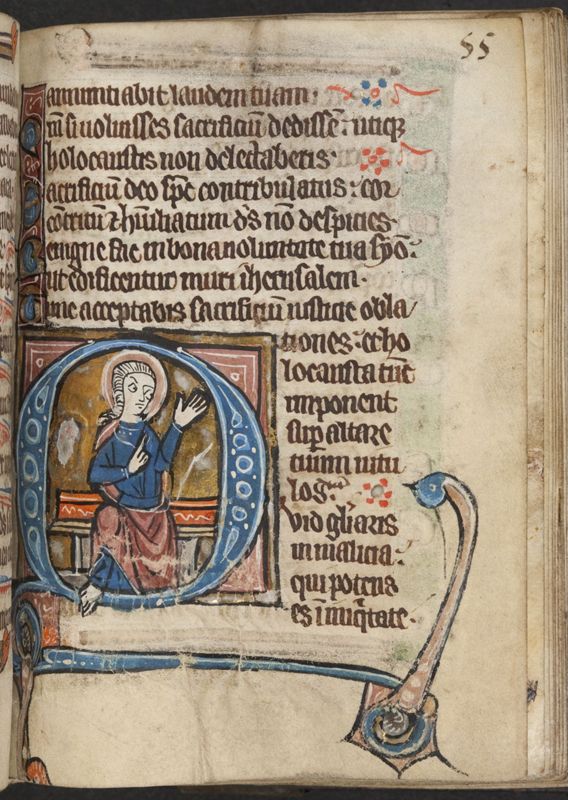 55
annuntiabit laudem tuam.
m̄ si uoluisses sacrificiū dedissē: utiqꝫ
holocaustis non delectaberis.
acrificiū deo spē contribulatus: cor
cōtritū ⁊ hūiliatum dꝰs nō despicies.
enigne fac in bona uoluntate tua syō:
ut edificentur muri iherusalem.
unc acceptabis sacrificiū iusticie obla/
tiones: et ho
locausta tūc
imponent
sup altare
tuum uitu
los.
vid gl̄iaris
in malicia:
qui potens
es ī iniqͥtate.